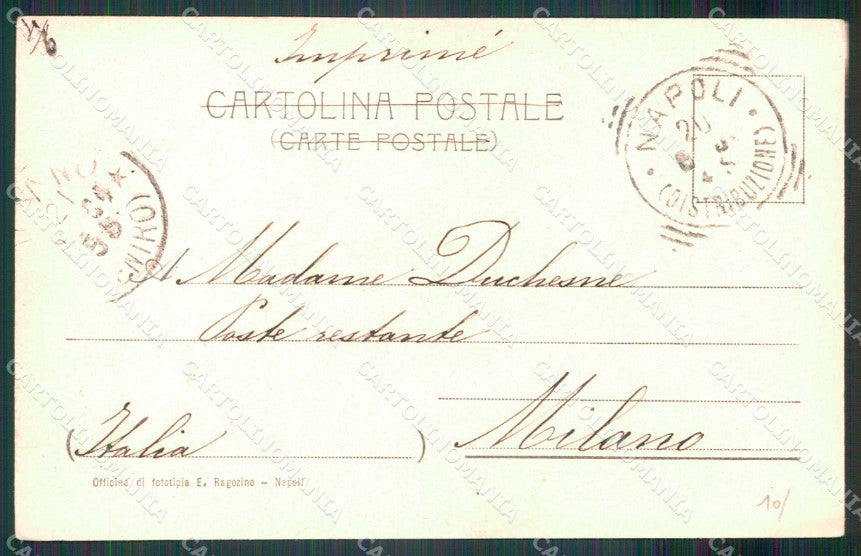 Imprimé
CARTOLINA POSTALE
(CARTE POSTALE)
NAPOLI
(DISTRIBUZIONE)
A Madame Duchesne
Poste restante
(Italia)
Milano
Officina di fototipia E. Ragozino – Napoli
10/
CARTOLINOMANIA